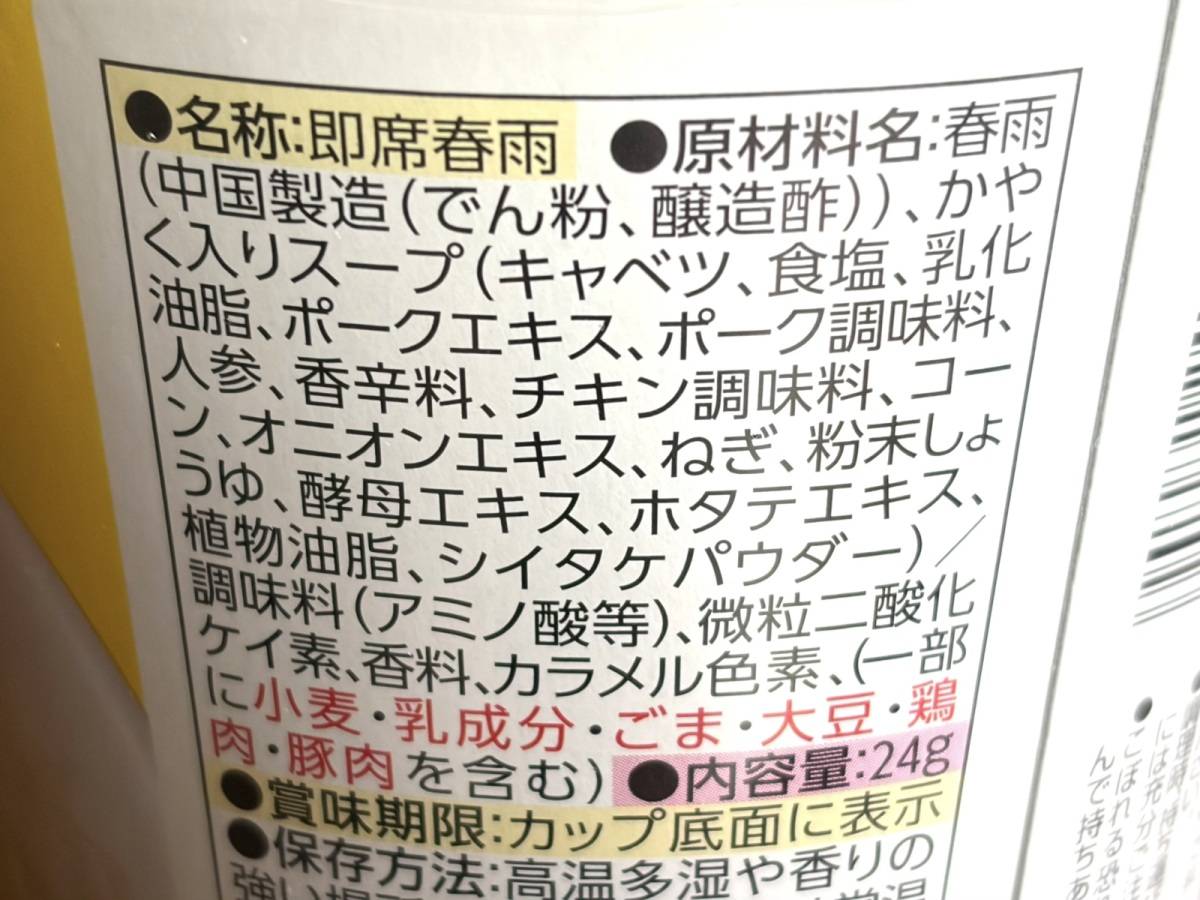 ●名称:即席春雨 ●原材料名:春雨
(中国製造(でん粉、醸造酢))、かや
く入りスープ(キャベツ、食塩、乳化
油脂、ポークエキス、ポーク調味料、
人参、香辛料、チキン調味料、コー
ン、オニオンエキス、ねぎ、粉末しょ
うゆ、酵母エキス、ホタテエキス、
植物油脂、シイタケパウダー)/
調味料(アミノ酸等)、微粒二酸化
ケイ素、香料、カラメル色素、(一部
に小麦・乳成分・ごま・大豆・鶏
肉・豚肉を含む) ●内容量:24g
●賞味期限:カップ底面に表示
●保存方法:高温多湿や香りの
強い